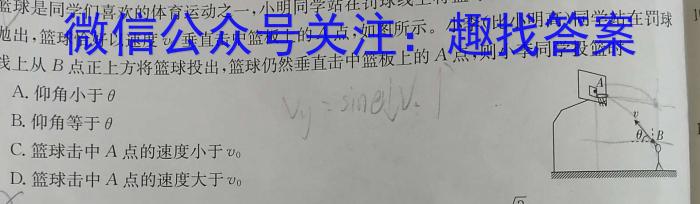 篮球是同学们喜欢的体育运动之一,小明同学站在罚球线上将篮
抛出,篮球 垂直击中篮板上的A点,如图所示。 比小明高 同学站在罚球
线上从B点正上方将篮球投出,篮球仍然垂直击中篮板上的A点,则小李同学投篮时
微信公众号关注:趣找答案
A. 仰角小于θ
B. 仰角等于θ
C. 篮球击中A点的速度小于v₀
D. 篮球击中A点的速度大于v₀
A
v
θ
B